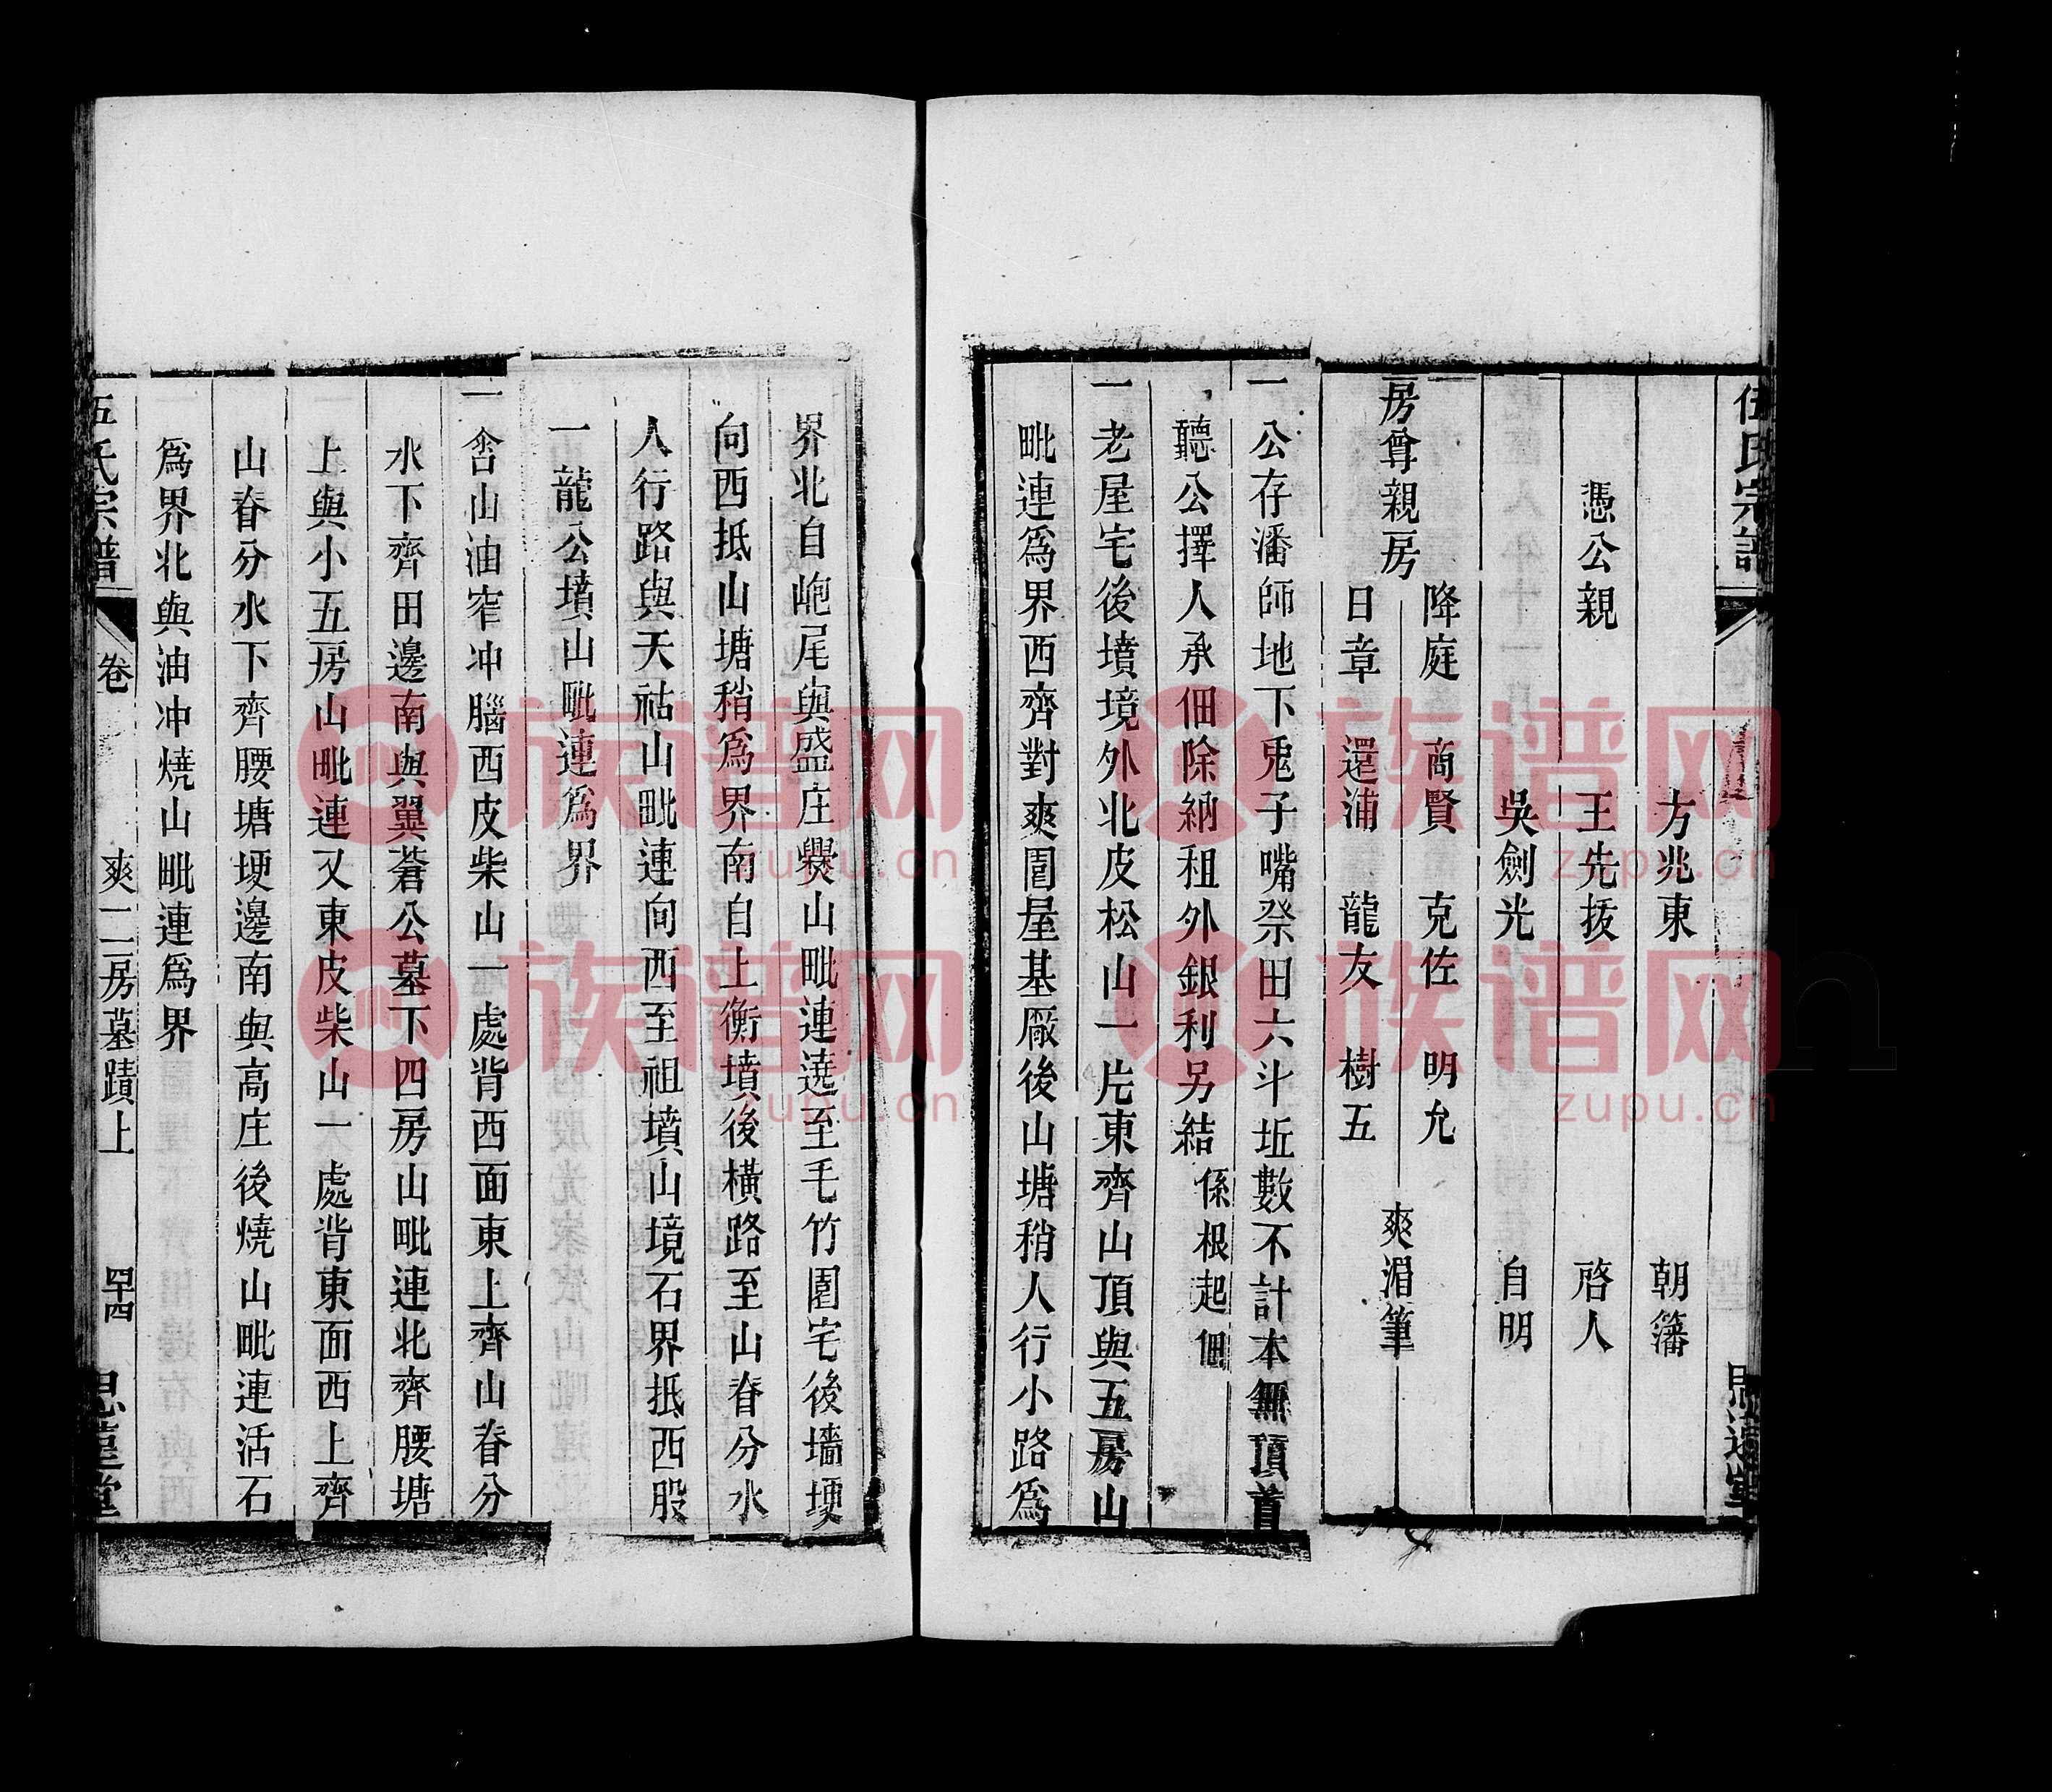 伍氏宗譜
方兆東　朝籓
憑公親　王先拔　啓人
吳劍光　自明
降庭　商賢　克佐　明允
房尊親房　爽湄筆
日章　還浦　龍友　樹五
一公存潘師地下兎子嘴祭田六斗坵數不計本無頂首
聽公擇人承佃除納租外銀利另結係根起佃
一老屋宅後墳境外北皮松山一片東齊山頂與五房山
毗連爲界西齊對爽圍屋基廠後山塘稍人行小路爲
界北自峞尾與盛庄爨山毗連遶至毛竹園宅後墻埂
向西抵山塘稍爲界南自上衡墳後橫路至山脊分水
人行路與天祜山毗連向西至祖墳山境石界抵西股
一龍公墳山毗連爲界
一舎山油窄冲腦西皮柴山一處背西面東上齊山脊分
水下齊田邊南與翼蒼公墓下四房山毗連北齊腰塘
上與小五房山毗連又東皮柴山一處背東面西上齊
山脊分水下齊腰塘埂邊南與高庄後燒山毗連活石
爲界北與油冲燒山毗連爲界
伍氏宗譜　卷　爽一二房墓蹟上　四十四